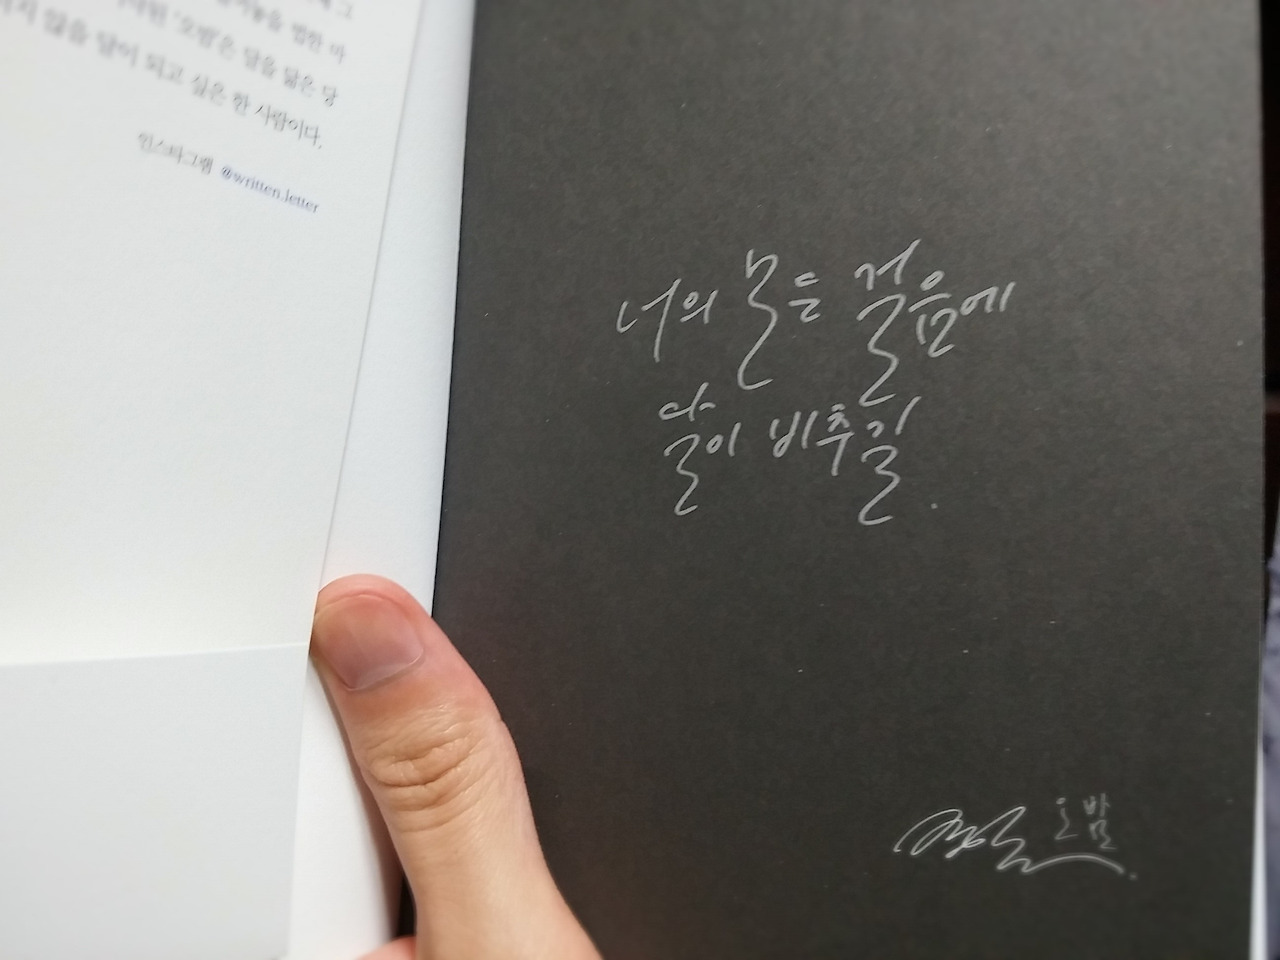 을 법한 마
'오밤'은 달을 닮은 당
않을 달이 되고 싶은 한 사람이다.
인스타그램 @written.letter
너의 모든 걸음에
달이 비추길.
오밤